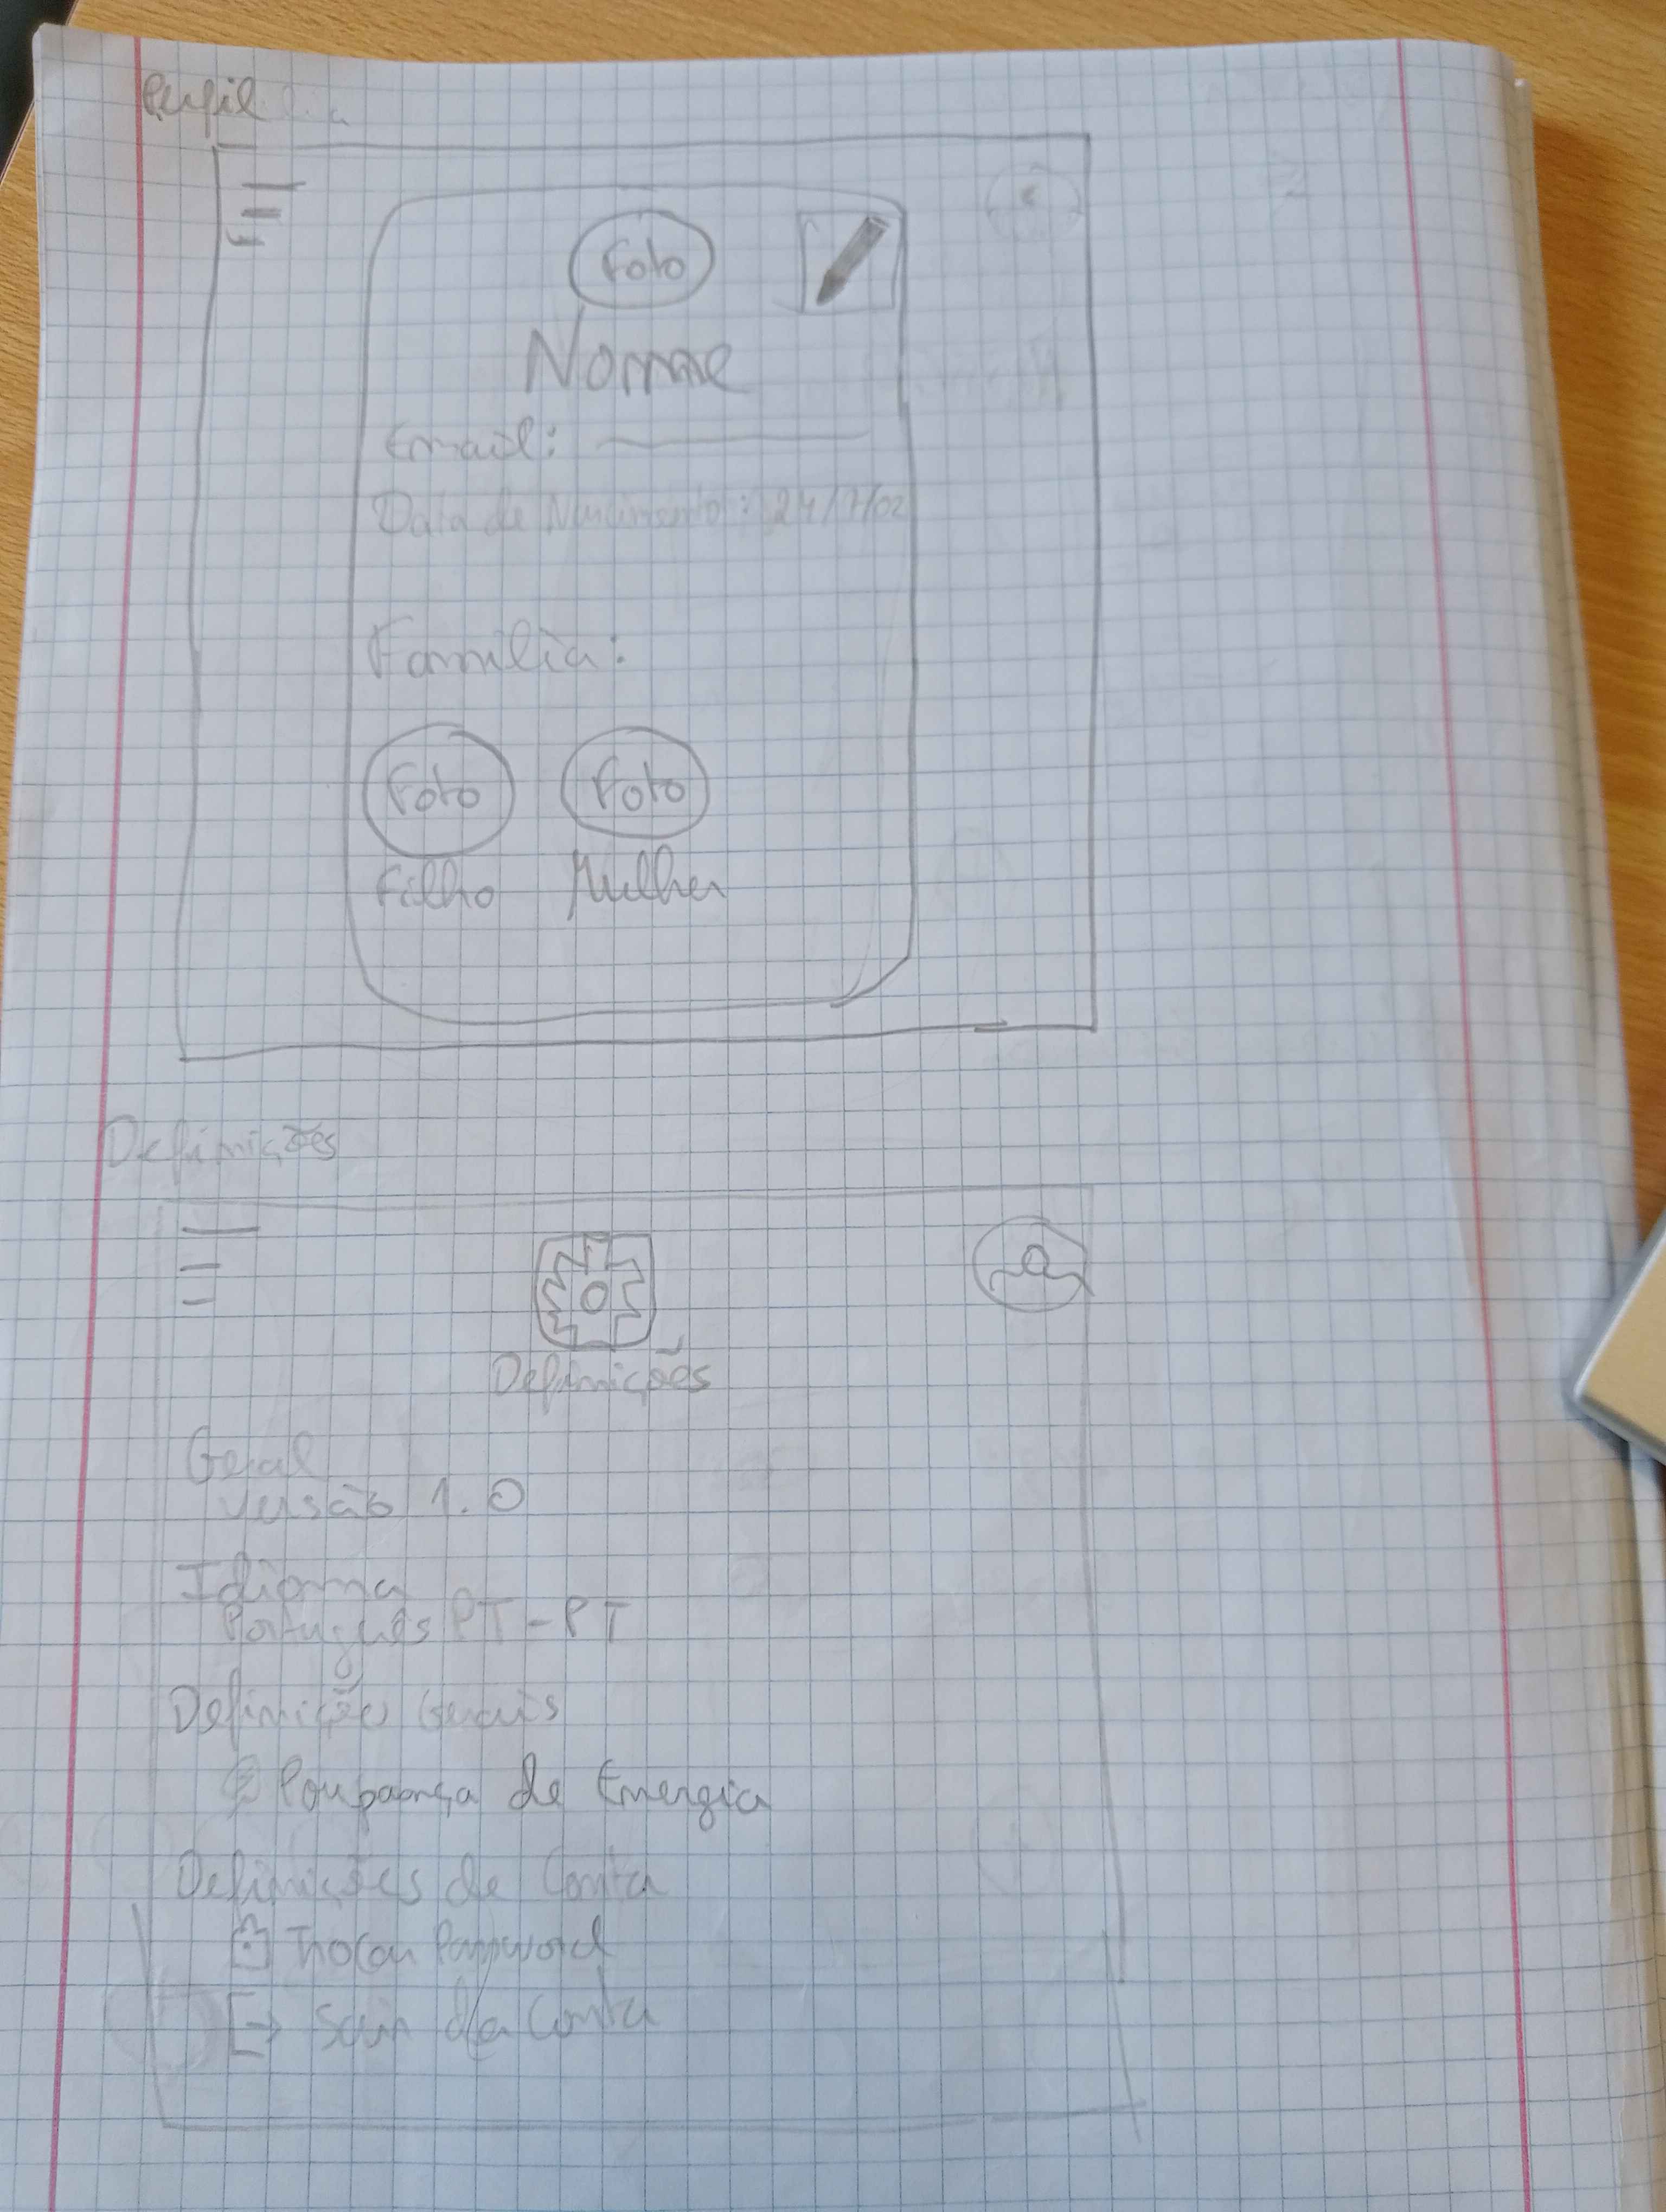 Perfil
Foto
Nome
Email:
Data de Nascimento: 24/7/02
Família:
Foto Foto
Filho Mulher
Definições
Definições
Geral
Versão 1.0
Idioma
Português PT-PT
Definições Gerais
Poupança de Energia
Definições de Conta
Trocar Password
Sair da Conta